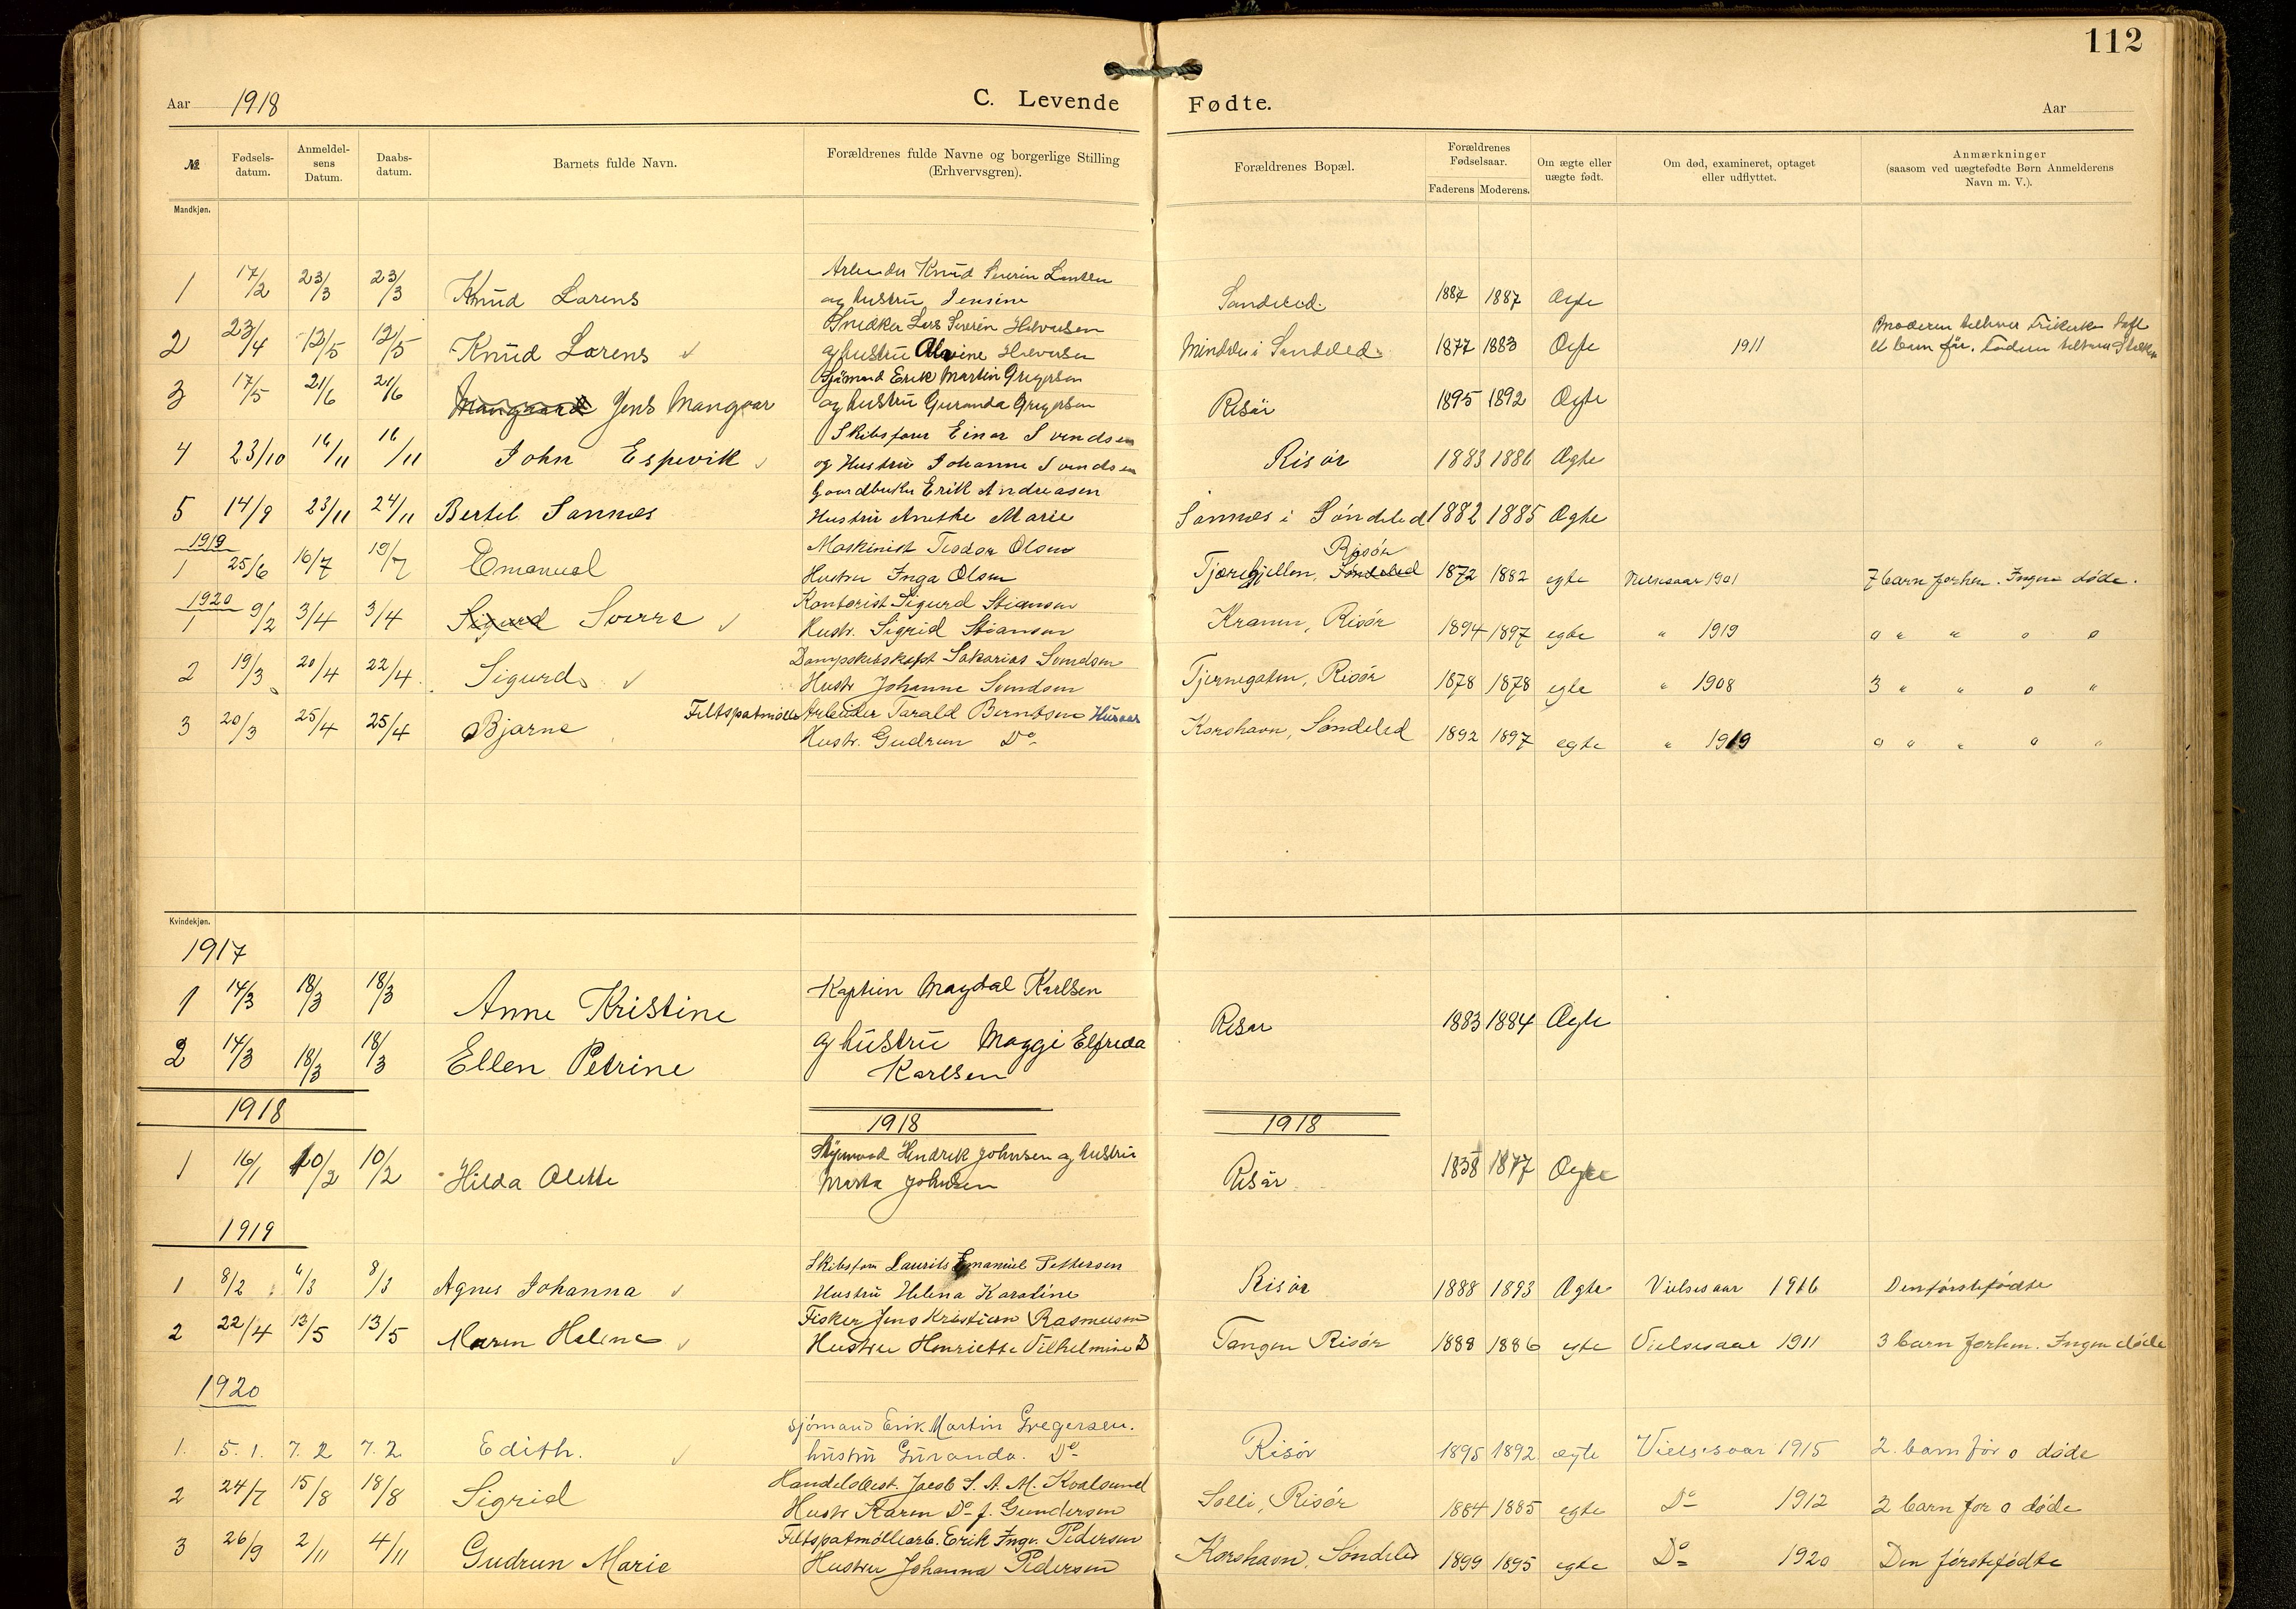 112
Aar 1918 C. Levende Fødte. Aar
№ Fødsels-datum. Anmeldel-sens Datum. Daabs-datum. Barnets fulde Navn. Forældrenes fulde Navne og borgerlige Stilling (Erhvervsgren). Forældrenes Bopæl. Forældrenes Fødselsaar. Faderens Moderens. Om ægte eller uægte født. Om død, examineret, optaget eller udflyttet. Anmærkninger (saasom ved uægtefødte Børn Anmelderens Navn m. V.).
Mandkjøn.
Arbeider Knud Severin
1 17/2 23/3 23/3 Knud Lorens og hustru Jensine Sandeled. 1887 1887 Ægte
Snedker Lars Severin Halvorsen
2 23/4 12/5 12/5 Knud Lorens og hustru Alvine Halvorsen i Sandeled 1877 1883 Ægte 1911 et barn før.
Sjømand Erik Martin Gregersen
3 17/5 21/6 21/6 Mangaard Jens Mangvar og hustru Guranda Gregersen Risør 1895 1892 Ægte
Skibsfører Einar Svendsen
4 23/10 16/11 16/11 John Espevik og Hustru Johanne Svendsen Risør 1883 1886 Ægte
Gaardbruker Erik Andreasen
5 14/9 23/11 24/11 Bertel Sannæs Hustru Anethe Marie Sannæs i Søndeled 1882 1885 Ægte
1919 Maskinist Teodor Olsen Risør
1 25/6 16/7 19/7 Emanuel Hustru Inga Olsen Tjærefjellen, Søndeled 1872 1882 egte Vielsesaar 1901 7 barn forhen. Ingen døde.
1920 Kontorist Sigurd Stiansen
1 9/2 3/4 3/4 Sigurd Sverre Hustr. Sigrid Stiansen Kranen, Risør 1894 1897 egte " 1919 0 " " 0 0
Dampskibsskspt Sakarias Svendsen
2 19/3 20/4 22/4 Sigurd Hustr Johanne Svendsen Tjernegaten, Risør 1878 1878 egte " 1908 3 " " 0 "
Feltspatmølle Arbeider Tarald Berntsen Husaas
3 20/3 25/4 25/4 Bjarne Hustr. Gudrun Do Korshavn, Søndeled 1892 1897 egte " 1919 0 0 " 0 "
Kvindekjøn.
1917
1 14/3 18/3 18/3 Anne Kristine Kaptein Magdal Karlsen
Risør 1883 1884 Ægte
2 14/3 18/3 18/3 Ellen Petrine og hustru Maggi Elfreda
Karlsen
1918 1918 1918
Sjømand Hendrik Johnsen og hustru
1 16/1 10/2 10/2 Hilda Olette Marta Johnsen Risør 1838 1877 Ægte
1919
Skibsføre Laurits Emanuel Pettersen
1 8/2 8/3 Agnes Johanna Hustru Helena Karoline Risør 1888 1893 Ægte Vielsesaar 1916 Den førstefødte
Fisker Jens Kristian Rasmusen
2 22/4 13/5 13/5 Maren Helene Hustru Henriette Vilhelmine D Tangen Risør 1888 1886 egte Vielsesaar 1911 3 barn forhen. Ingen døde
1920
Sjömand Erik Martin Gregersen.
1. 5. 1. 7. 2 7. 2 Edith. hustru Guranda. Do Risør 1895 1892 ægte Vielsesaar 1915 2. barn før 0 døde
Handelsbest. Jacob S. A. M. Kvalsund
2 24/7 15/8 18/8 Sigrid Hustr Karen Do f. Gundersen Solli, Risør 1884 1885 egte Do 1912 2 barn før 0 døde
Feltspatmøllearb. Erik Ingv. Pedersen
3 26/9 2/11 4/11 Gudrun Marie Hustru Johanna Pedersen Korshavn, Søndeled 1899 1895 egte Do 1920 Den førstefødte